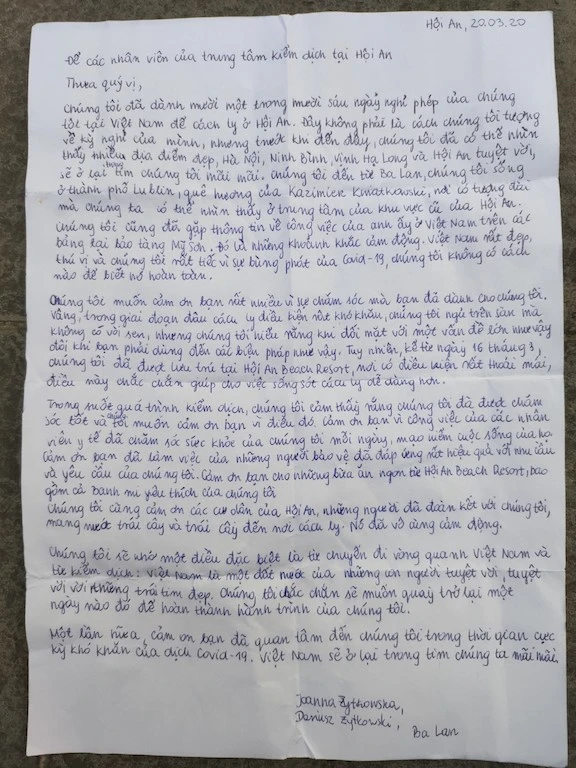 Hội An, 20.03.20
Để các nhân viên của trung tâm kiểm dịch tại Hội An
Thưa quý vị,
Chúng tôi đã dành mười một trong mười sáu ngày nghỉ phép của chúng
tôi tại Việt Nam để cách ly ở Hội An. Đây không phải là cách chúng tôi tưởng tượng
về kỳ nghỉ của mình, nhưng trước khi đến đây, chúng tôi đã có thể nhìn
thấy nhiều địa điểm đẹp, Hà Nội, Ninh Bình, Vịnh Hạ Long và Hội An tuyệt vời,
sẽ ở lại trong tim chúng tôi mãi mãi. Chúng tôi đến từ Ba Lan, chúng tôi sống
ở thành phố Lublin, quê hương của Kazimierz Kwiatkowski, nơi có tượng đài
mà chúng ta có thể nhìn thấy ở trung tâm của khu vực cũ của Hội An.
Chúng tôi cũng đã gặp thông tin về công việc của anh ấy ở Việt Nam trên các
bảng tại bảo tàng Mỹ Sơn. Đó là những khoảnh khắc cảm động. Việt Nam rất đẹp,
thú vị và chúng tôi rất tiếc vì sự bùng phát của Covid-19, chúng tôi không có cách
nào để biết nó hoàn toàn.
Chúng tôi muốn cảm ơn bạn rất nhiều vì sự chăm sóc mà bạn đã dành cho chúng tôi.
Vâng, trong giai đoạn đầu cách ly điều kiện rất khó khăn, chúng tôi ngủ trên sàn mà
không có vòi sen, nhưng chúng tôi hiểu rằng khi đối mặt với một vấn đề lớn như vậy
đôi khi bạn phải dùng đến các biện pháp như vậy. Tuy nhiên, kể từ ngày 16 tháng 3,
chúng tôi đã được lưu trú tại Hội An Beach Resort, nơi có điều kiện rất thoải mái,
điều này chắc chắn giúp cho việc sống sót cách ly dễ dàng hơn.
Trong suốt quá trình kiểm dịch, chúng tôi cảm thấy rằng chúng tôi đã được chăm
sóc tốt và chúng tôi muốn cảm ơn bạn vì điều đó. Cảm ơn bạn vì công việc của các nhân
viên y tế đã chăm sóc sức khỏe của chúng tôi mỗi ngày, mạo hiểm cuộc sống của họ.
Cảm ơn bạn đã làm việc của những người bảo vệ đã đáp ứng rất hiệu quả với nhu cầu
và yêu cầu của chúng tôi. Cảm ơn bạn cho những bữa ăn ngon từ Hội An Beach Resort, bao
gồm cả bánh mì yêu thích của chúng tôi
Chúng tôi cũng cảm ơn các cư dân của Hội An, những người đã đoàn kết với chúng tôi,
mang nước trái cây và trái cây đến nơi cách ly. Nó đã vô cùng cảm động.
Chúng tôi sẽ nhớ một điều đặc biệt là từ chuyến đi vòng quanh Việt Nam và
từ kiểm dịch: Việt Nam là một đất nước của những con người tuyệt vời, tuyệt
vời với những trái tim đẹp. Chúng tôi chắc chắn sẽ muốn quay trở lại một
ngày nào đó để hoàn thành hành trình của chúng tôi.
Một lần nữa, cảm ơn bạn đã quan tâm đến chúng tôi trong thời gian cực
kỳ khó khăn của dịch Covid-19. Việt Nam sẽ ở lại trong tim chúng ta mãi mãi.
Joanna Żytkowska,
Dariusz Żytkowski,
Ba Lan